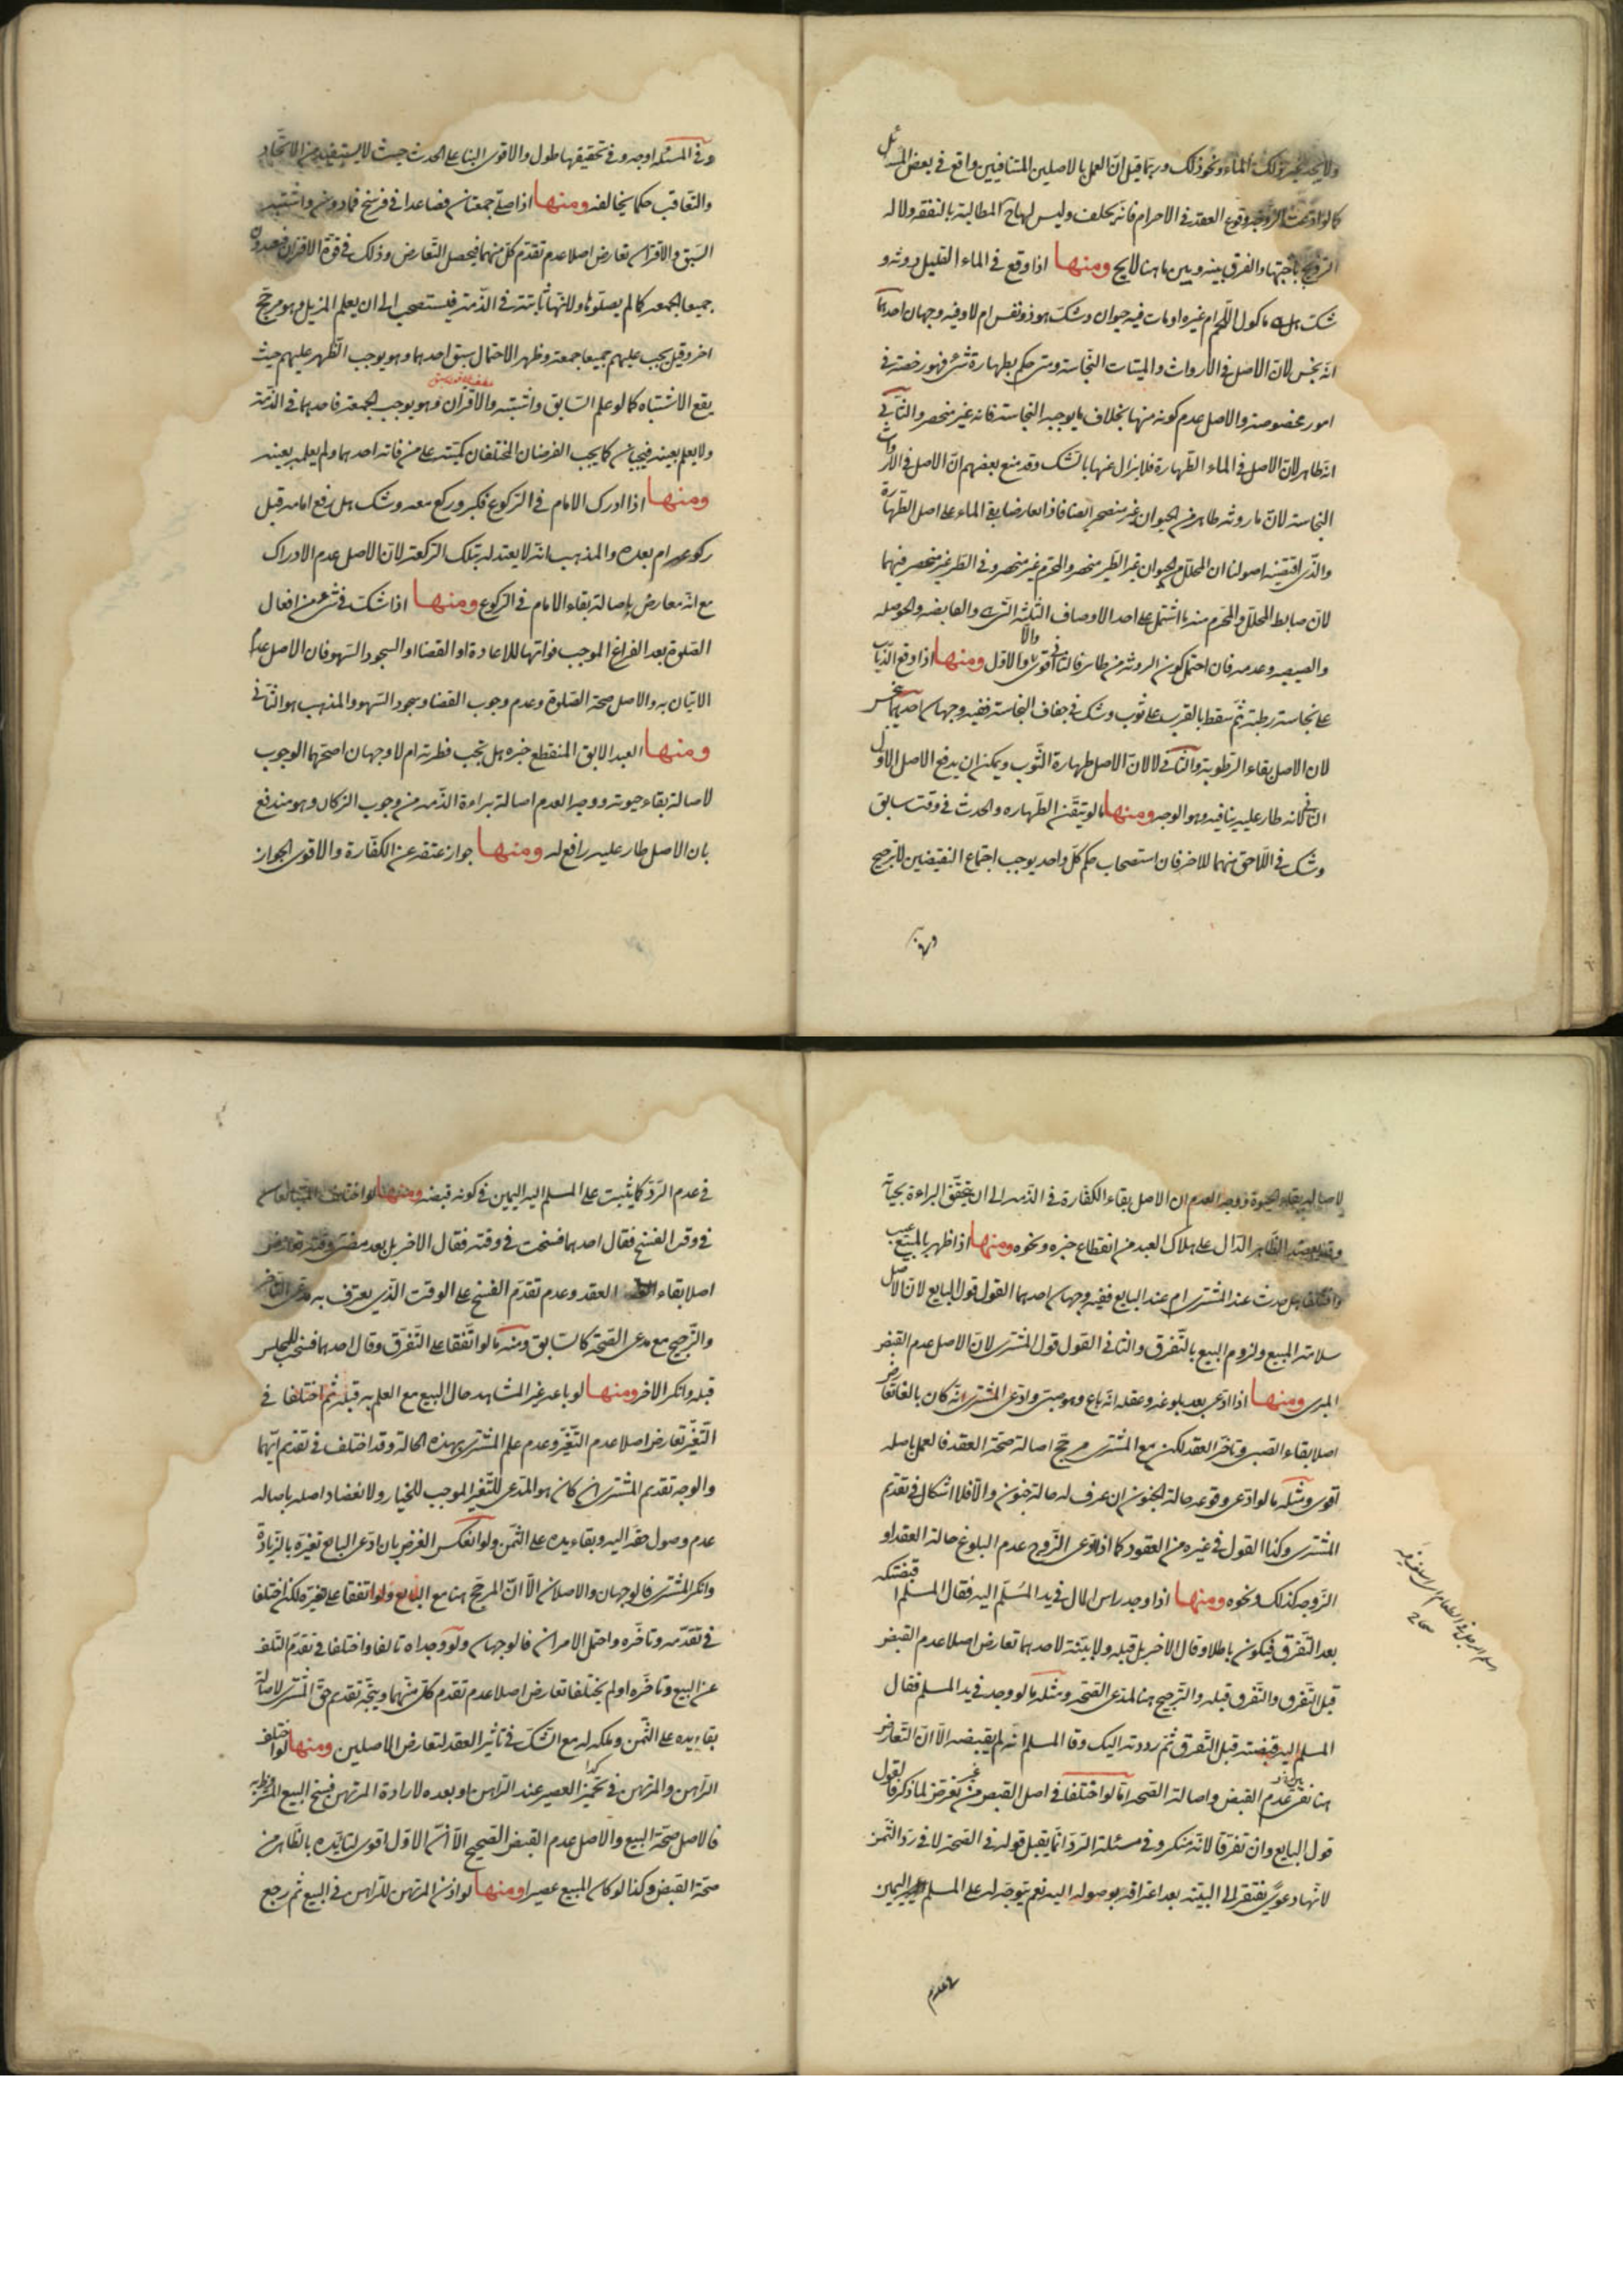 ولا يجب غير ذلك الماء ونحو ذلك وربما قيل انّ العمل بالاصلين المتنافيين واقع في بعض المسائل
كما لو ادّعت الزوجة وقوع العقد في الاحرام فانه يحلف وليس لها ح المطالبة بالنفقة ولا له
التزويج باختها والفرق بينه وبين ما هنا لايح ومنها اذا وقع في الماء القليل روثه و
شك هل له ماكول اللحم ام غيره او مات فيه حيوان وشك هو ذو نفس ام لا وفيه وجهان احدهما
انه نجس لان الاصل في الارواث والميتات النجاسة ومتى حكم بطهارة شئ فهو رخصة في
امور مخصوصة والاصل عدم كونه منها بخلاف ما يوجب النجاسة فانه غير منحصر والثاني
انه طاهر لان الاصل في الماء الطهارة فلا يزال عنها بالشك وقد منع بعضهم انّ الاصل في الارواث
النجاسة لان ما روثه طاهر من الحيوان غير منحصر ايضا فاذا تعارضا بقي الماء على اصل الطهارة
والذي اقتضته اصولنا ان المحلل من الحيوان غير الطير منحصر والمحرم غير منحصر وفي الطير غير منحصر فيهما
لان ضابط المحلل والمحرم منه ما اشتمل على احد الاوصاف الثلثة التي والقابضه والحوصله
والصيصيه وعدمه فان احتمل كون الروثه من طاير فالثاني اقوى والا فالاول ومنها اذا وقع الذباب
على نجاسة رطبة ثم سقط بالقرب على ثوب وشك في جفاف النجاسة ففيه وجهان احدهما نجس
لان الاصل بقاء الرطوبة والثاني لا لان الاصل طهارة الثوب ويمكن ان يدفع الاصل الاول
الثاني لانه طار عليه ينافيه وهو الوجه ومنها ما لو تيقن الطهاره والحدث في وقت سابق
وشك في اللاحق منهما للاخر فان استصحاب حكم كل واحد يوجب اجتماع النقيضين لا ترجيح
وفي المسئله اوجه وفي تحقيقها طول والاقوى البنا على الحدث حيث لا يستفيد من الاتحاد
والتعاقب حكما يخالفه ومنها اذا صلّي جمعتان فصاعدا في فرسخ فما دونه واشتبه
السبق والاقتران تعارض اصلا عدم تقدم كل منهما فيحصل التعارض وذلك في قوة الاقتران فيعيدون
جميعا الجمعه كما لم يصلوها ولانها ثابتة في الذمة فيستصحب الى ان يعلم المزيل وهو مرجح
اخر وقيل يجب عليهم جميعا جمعة وظهر الاحتمال سبق احدهما وهو يوجب الظهر عليهم حيث
يقع الاشتباه كما لو علم السابق واشتبه والاقتران وهو يوجب الجمعة فاحدهما في الذمة
ولا يعلم بعينه فيجبان كما يجب الفرضان المختلفان كميّة على من فاته احدهما ولم يعلمه بعينه
ومنها اذا ادرك الامام في الركوع فكبر وركع معه وشك هل رفع امامه قبل
ركوعه ام بعده والمذهب انه لا يعتد له بتلك الركعة لان الاصل عدم الادراك
مع انه معارض باصالة بقاء الامام في الركوع ومنها اذا شك في شئ من افعال
الصلوة بعد الفراغ الموجب فواتها للاعادة او القضا او السجود السهو فان الاصل عدم
الاتيان به والاصل صحة الصلوة وعدم وجوب القضا وسجود السهو والمذهب هو الثاني
ومنها العبد الابق المنقطع خبره هل تجب فطرته ام لا وجهان اصحهما الوجوب
لاصالة بقاء حيوته ووجه العدم اصالة براءة الذمه من وجوب الزكان وهو مندفع
بان الاصل طار عليه رافع له ومنها جواز عتقه عن الكفارة والاقوى الجواز
لاصالة بقاء الحيوة ووجه العدم ان الاصل بقاء الكفارة في الذمه الى ان يتحقق البراءة بحياته
وقد يعضد الظاهر الدال على هلاك العبد من انقطاع خبره ونحوه ومنها اذا ظهر بالمبيع عيب
واختلفا هل حدث عند المشتري ام عند البايع ففيه وجهان احدهما القول قول البايع لان الاصل
سلامة المبيع ولزوم البيع بالتفرق والثاني القول قول المشتري لان الاصل عدم القبض
المبرى ومنها اذا ادعى بعد بلوغه وعقله انه باع وهو صبي وادعى المشتري انه كان بالغا تعارض
اصلا بقاء الصبى وتاخر العقد لكن مع المشتري مرجح اصالة صحة العقد فالعمل باصله
اقوى ومثله ما لو ادعى وقوعه حالة الجنون ان عرف له حالة جنون والا فلا اشكال في تقديم
المشتري وكذا القول في غيره من العقود كما اذا ادعى الزوج عدم البلوغ حالة العقد او
الزوجه كذلك ونحوه ومنها اذا وجد راس المال في يد المسلّم اليه فقال المسلم اقبضتكه
بعد التفرق فيكون باطلا وقال الاخر بل قبله ولا بينة لاحدهما تعارض اصلا عدم القبض
قبل التفرق والتفرق قبله والترجيح هنا لمدعى الصحة ومثله ما لو وجد في يد المسلم فقال
المسلم اليه قبضته قبل التفرق ثم رددته اليك وقا المسلم انه لم يقبضه الا انّ التعارض
هنا بين عدم القبض واصالة الصحه اما لو اختلفا في اصل القبض من غير تعرض لما ذكر فالقول
قول البايع وان تفرقا لانه منكر وفي مسئلة الرد انما يقبل قوله في الصحة لا في رد الثمن
لانها دعوى يفتقر الى البينه بعد اعترافه بوصوله اليه نعم يتوجه له على المسلم اليمين
في عدم الرد كما يثبت على المسلم اليه اليمين في كونه قبضه ومنها لو اختلف المتبايعان
في وقت الفسخ فقال احدهما فسخت في وقته فقال الاخر بل بعد مضى وقته تعارض
اصلا بقاء العقد وعدم تقدم الفسخ على الوقت الذي يعترف به مدعى التاخر
والترجيح مع مدعى الصحة كالسابق ومنه ما لو اتفقا على التفرق وقال احدهما فسخت المجلس
قبله وانكر الاخر ومنها لو باعه غير المشاهد حال البيع مع العلم به قبله ثم اختلفا في
التغير تعارض اصلا عدم التغير وعدم علم المشتري بهذه الحالة وقد اختلف في تقديم ايهما
والوجه تقديم المشتري ان كان هو المدعى للتغير الموجب للخيار ولانعضاد اصله باصاله
عدم وصول حقه اليه وبقاء يده على الثمن ولو انعكس الفرض بان ادعى البايع تغيره بالزيادة
وانكر المشتري فالوجهان والاصلان الا انّ المرجح هنا مع البايع ولو اتفقا على تغيره لكن اختلفا
في تقدمه وتاخره واحتمل الامران فالوجهان ولو وجداه تالفا واختلفا في تقدم التلف
عن البيع وتاخره او لم يختلفا تعارض اصلا عدم تقدم كل منهما ويتجه تقديم حق المشتري لاصالة
بقاء يده على الثمن وملكه له مع الشك في تاثير العقد لتعارض الاصلين ومنها لو اختلف
الراهن والمرتهن في تخمير العصير عند الراهن او بعده لارادة المرتهن فسخ البيع المشروط به
فالاصل صحة البيع والاصل عدم القبض الصحيح الا انّ الاول اقوى لتايده بالظاهر من
صحة القبض وكذا لو كان المبيع عصيرا ومنها لو اذن المرتهن للراهن في البيع ثم رجع